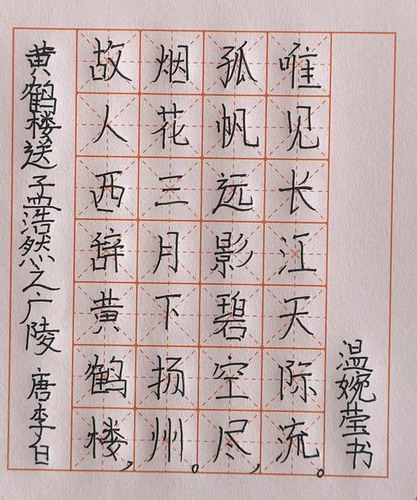 黄鹤楼送孟浩然之广陵 唐李白
故人西辞黄鹤楼,
烟花三月下扬州。
孤帆远影碧空尽,
唯见长江天际流。
温婉莹书